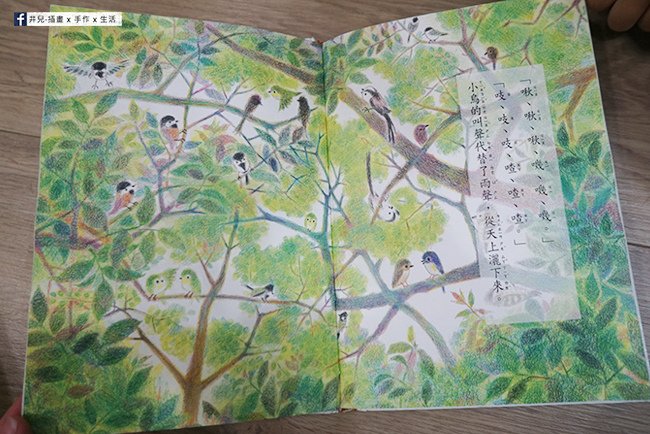 井兒-插畫 x 手作 x 生活
「啾、啾、啾、嘰、嘰、嘰。」
「吱、吱、吱、喳、喳、喳。」
小鳥的叫聲代替了雨聲，從天上灑下來。